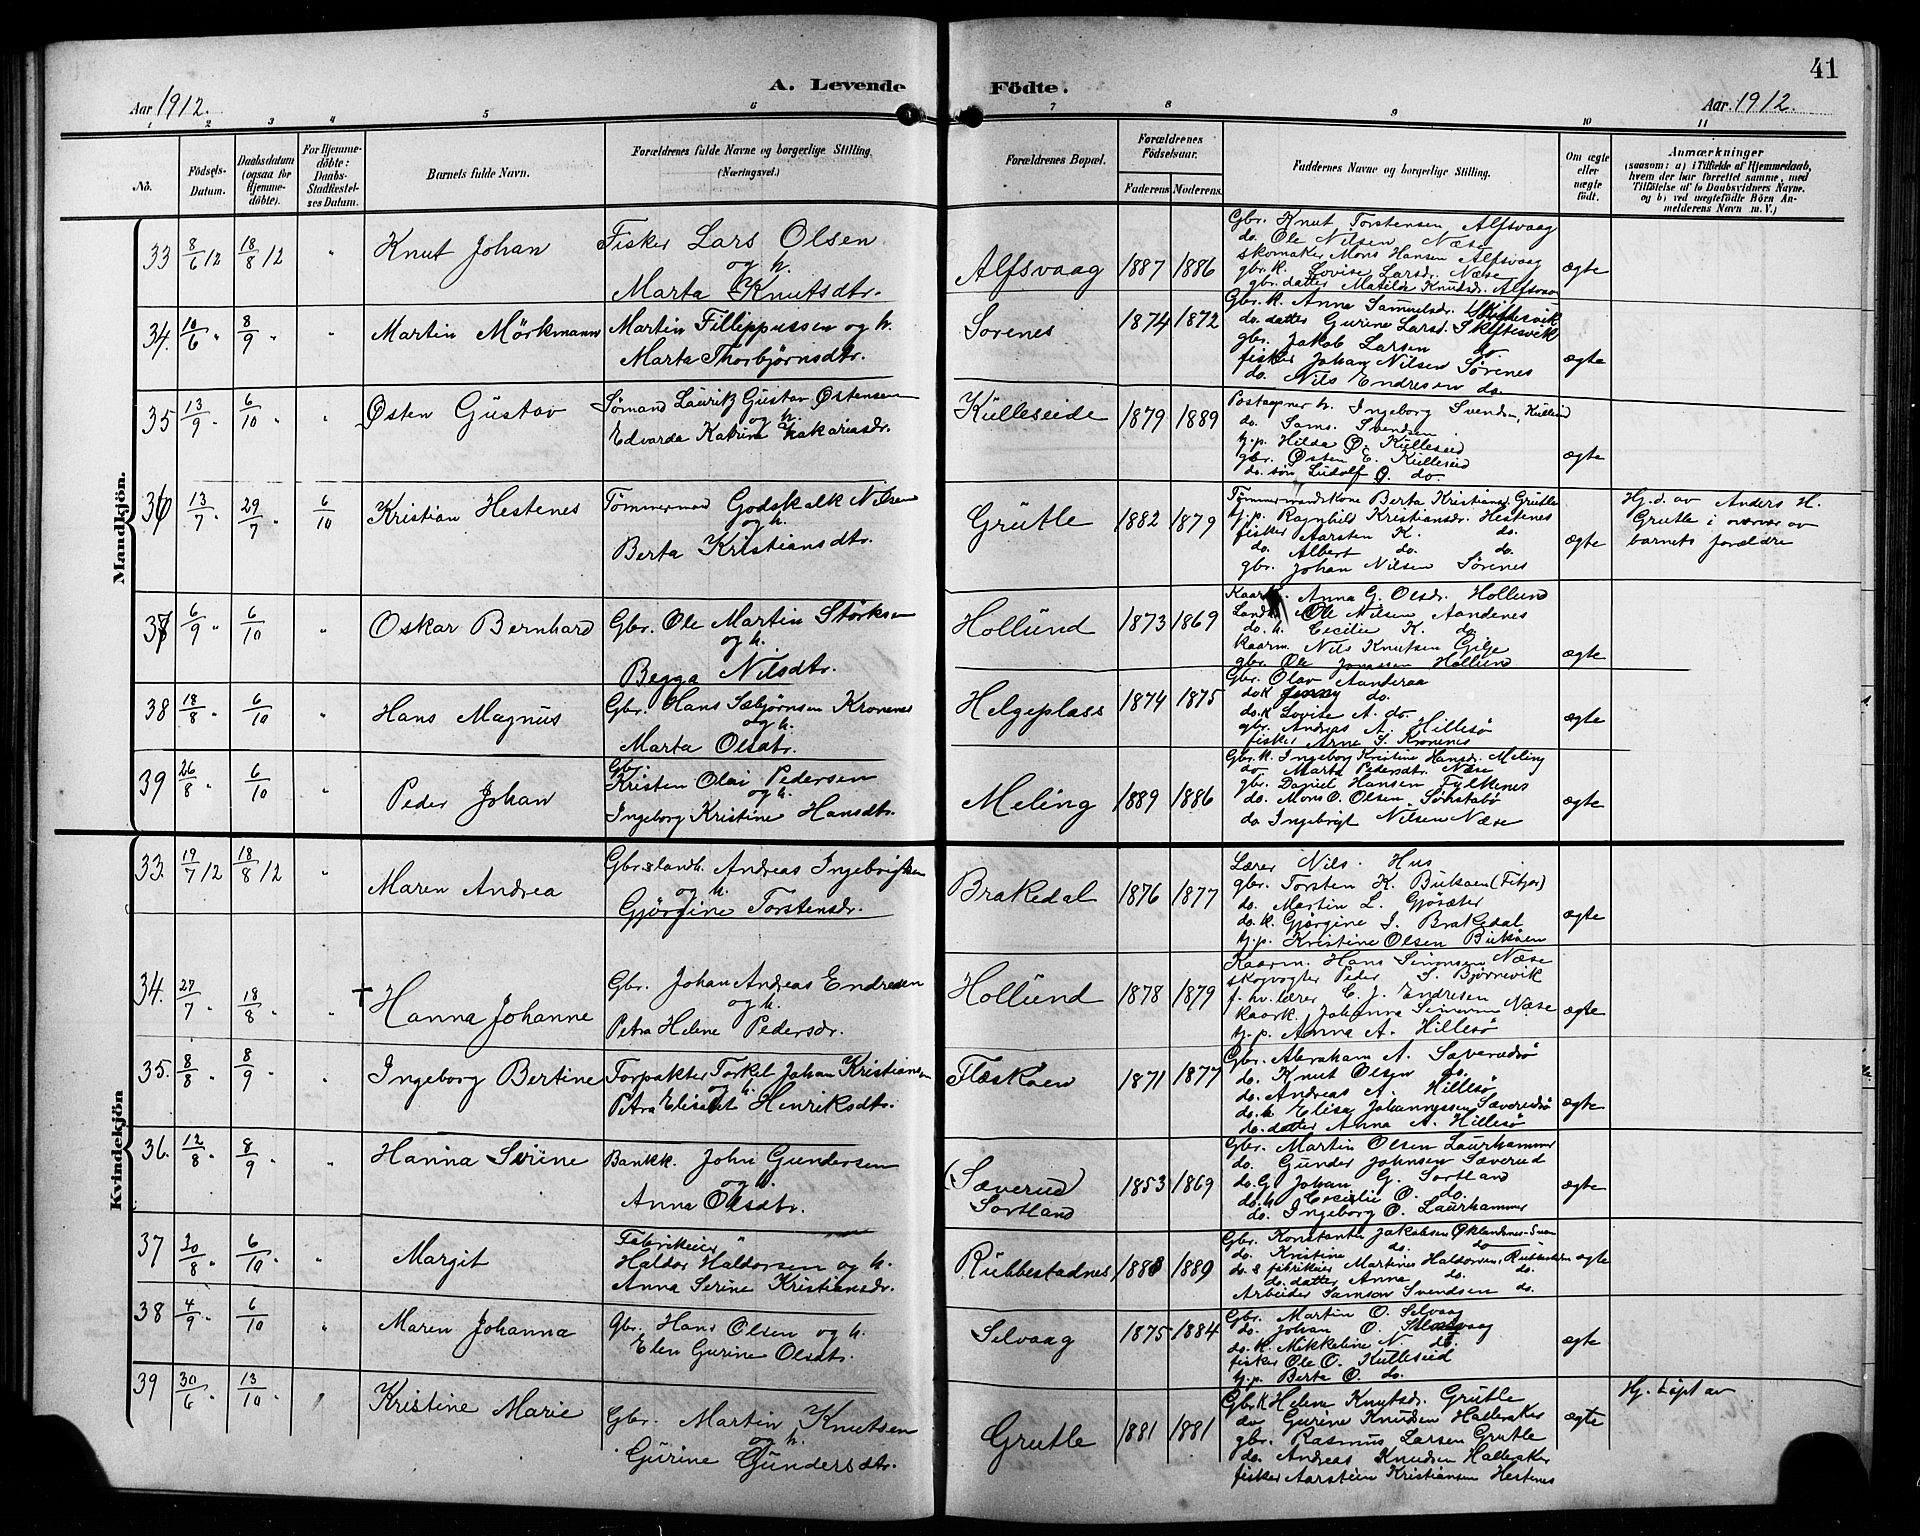 41
Aar 1912.
A. Levende Födte.
Aar 1912.
1 2 3 4 5 6 7 8 9 10 11
No.
Födsels-Datum.
Daabsdatum (ogsaa for Hjemme-döbte).
For Hjemme-döbte: Daabs-Stadfæstel-ses Datum.
Barnets fulde Navn.
Forældrenes fulde Navne og borgerlige Stilling. (Næringsvei.)
Forældrenes Bopæl.
Forældrenes Födselsaar.
Faderens. Moderens.
Faddernes Navne og borgerlige Stilling.
Om ægte eller uægte födt.
Anmærkninger
(saasom: a) i Tilfælde af Hjemmedaab, hvem der har forrettet samme, med Tilföielse af to Daabsvidners Navne. og b) ved uægtefödte Börn An-melderens Navn m. V.)
Mandkjön.
33 8/6 12 18/8 12 " Knut Johan
Fisker Lars Olsen
og h.
Marta Knutsdtr.
Alfsvaag 1887 1886
Gbr. Knut Torstensen Alfsvaag
do. Ole Nilsen Næse
skomaker Mons Hansen Alfsvaag
gbr.k. Lovise Larsdr. Næse
gbr. datter Matilde Knutsdr. Alfsvaag
ægte
34. 10/6 " 8/9 " " Martin Mörkmann
Martin Fillippussen og h.
Marta Thorbjørnsdtr.
Sørenes 1874 1872
Gbr. k. Anna Samuelsdr. Skiftesvik
do. datter Gurine Larsd. Skiftesvik
gbr. Jakob Larsen do.
fisker Johan Nilsen Sørenes
do. Nils Endresen do.
ægte
35 13/9 " 6/10 " " Østen Gustav
Sømand Lauritz Gustav Østensen
og h.
Edvarda Katrine Zakariasdr.
Kulleseide 1879 1889
Postaapner h. Ingeborg Svendsen, Kulleseid
do. Sams. Svendsen
tj.p. Hilda Ø. Kulleseid
gbr. Østen E. Kulleseid
do. søn Ludolf Ø. do.
ægte
36 13/7 " 29/7 " 6/10 Kristian Hestenes
Tømmermand Godskalk Nilsen
og h.
Berta Kristiansdtr.
Grutle 1882 1879
Tømmermandskone Berta Kristiansd. Grutle
tj.p. Ragnhild Kristiansdr. Hestenes
fisker Aarsten K. do.
do. Albert do. do.
gbr. Johan Nilsen Sørenes
ægte
Hj. d. av Anders H.
Grutle i overvær av
barnets forældre
37 6/9 " 6/10 " Oskar Bernhard
Gbr. Ole Martin Størksen
og h.
Begga Nilsdtr.
Hollund 1873 1869
Anna G. Olsdr. Hollund
Ole Nilsen Aandenes
do. h. Cecilie K. do
kaarm. Nils Knutsen Gilje
gbr. Ole Jonassen Hollund
ægte
38 18/8 " 6/10 " Hans Magnus
Gbr. Hans Sæbjørnsen Kronenes
og h.
Marta Olsdtr.
Helgeplass 1874 1875
Gbr. Olav Aanderaa
do k Jenny do.
do.k Lovise A. do.
gbr. Andreas A. Hillesø
fisker Arne S. Kronenes
ægte
39 26/8 " 6/10 " Peder Johan
Gbr.
Kristen Olai Pedersen
og h.
Ingeborg Kristine Hansdtr.
Meling 1889 1886
Gbr.k. Ingeborg Kristine Hansdr. Meling
do Marta Pedersdtr. Næse
gbr. Daniel Hansen Fylkenes
do. Mons O. Olsen
do Ingebrigt Nilsen Næse
ægte
Kvindekjön
33. 19/7 12 18/8 12 " Maren Andrea
Gbr. & landh. Andreas Ingebrigtsen
og h.
Gjørgine Torstensdr.
Brakedal 1876 1877
Lærer Nils. Hus
gbr. Torsten K. Bukøen (Fitjar)
do. Martin L. Gjøsæter
do. k. Gjørgine I. Brakedal
tj.p. Kristine Olsen Bukøen
ægte
34. 27/7 " 18/8 " " † Hanna Johanne
Gbr. Johan Andreas Endresen
og h.
Petra Helene Pedersdr.
Hollund 1878 1879
Kaarm. Hans Simonsen Næse
skogvogter Peder S. Bjørnevik
f. hv. lærer C. J. Endresen
kaark. Johanna Simonsen Næse
tj.p. Anna A. Hillesø
ægte
35. 8/8 " 8/9 " " Ingeborg Bertine
Forpakter Torkel Johan Kristiansen
og h.
Petra Elisabet Henriksdtr.
Flæskøen 1871 1877
Gbr. Abraham A. Sæverudsø
do. Knut Olsen do.
do. Andreas A. Hillesø
do. k Elisa Johannessen Sæverudsø
do. datter Anna A. Hillesø
ægte
36. 12/8 " 8/9 " " Hanna Serine
Bankk. John Gundersen
og h.
Anna Olsdtr.
(Sæverud)
Sortland 1853 1869
Gbr. Martin Olsen Laurhammer
do. Gunder Johnsen Sæverud
do. G Johan G. Sortland
do. h Cecilie O. do.
do. Ingeborg O. Laurhammer
ægte
37 20/8 " 6/10 " " Margit
Fabrikeier
Haldor Haldorsen og h.
Anna Serine Kristiansdr.
Rubbestadnes 1883 1889
Gbr. Konstantin Jakobsen
do. Kristine do. do
do. & fabrikeier Martines Haldorsen, Rubbestadn.
do. datter Anna do. do.
Arbeider Samson Svendsen do.
ægte
38 4/9 " 6/10 " " Maren Johanna
Gbr. Hans Olsen og h.
Elen Gurine Olsdtr.
Selvaag 1875 1884
Gbr. Martin O. Selvaag
do. Johan O. Selvaag
do. k. Mikkeline N. do.
fisker Ole O. Kulleseid
tj.p. Berta O. do.
ægte
39 30/6 " 13/10 " " Kristine Marie
Gbr. Martin Knutsen
og h.
Gurine Gundersdtr.
Grutle 1881 1881
Gbr. k Helene Knutsdr. Grutle
av Gurine Knudsen Halleraker
gbr. Rasmus Larsen Grutle
do. Andreas Knudsen Halleraker
fisker Aarstein Kristiansen Hestenes
ægte
Hj. døpt av